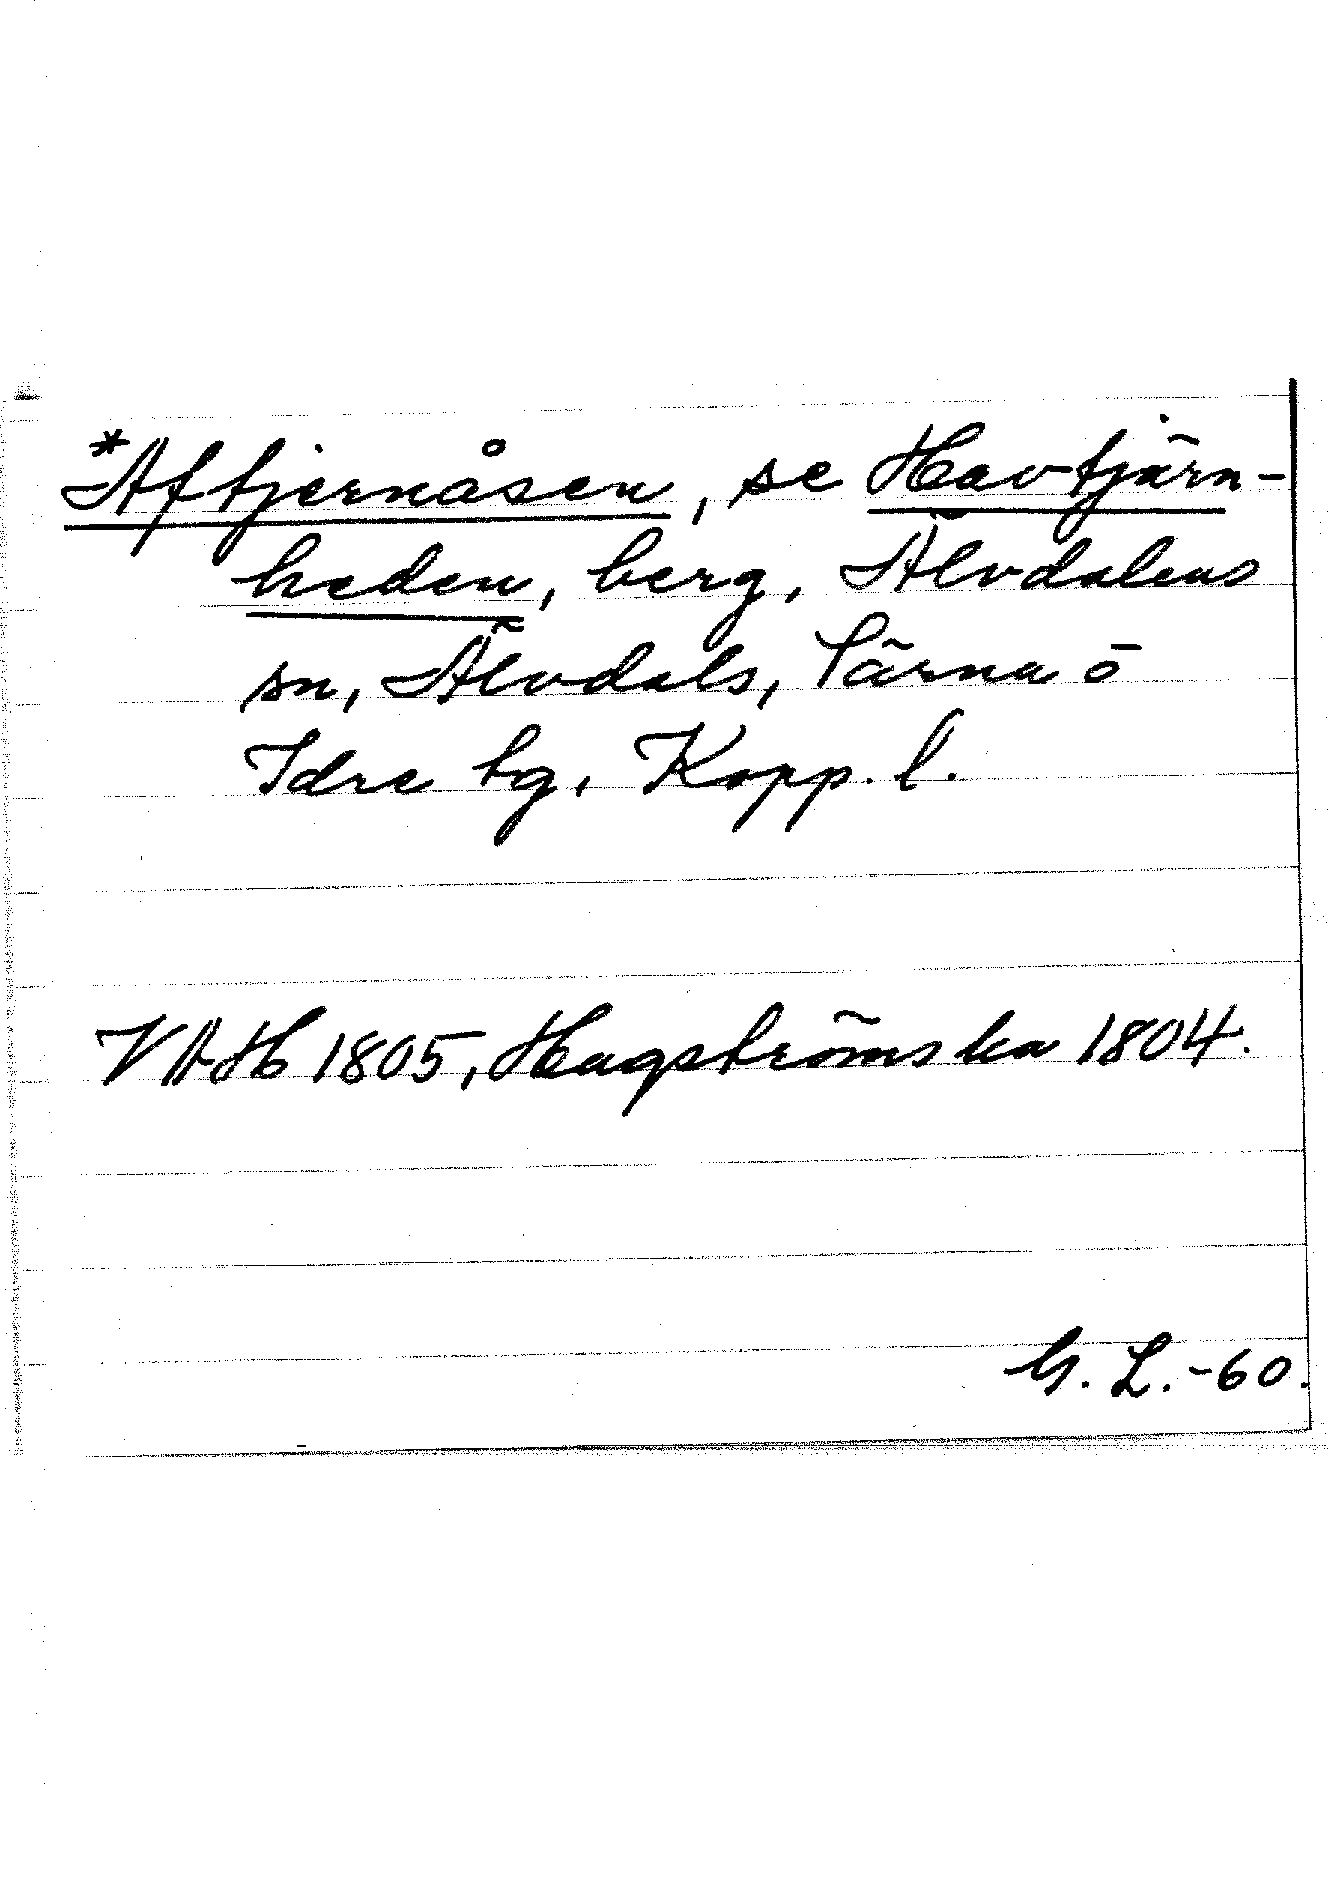 *Aftjernåsen, se Havtjärn-
heden, berg, Älvdalens
sn, Älvdals, Särna o
Idre tg, Kopp. l.
VAH 1805, Hagströmska 1804.
G. L. -60.